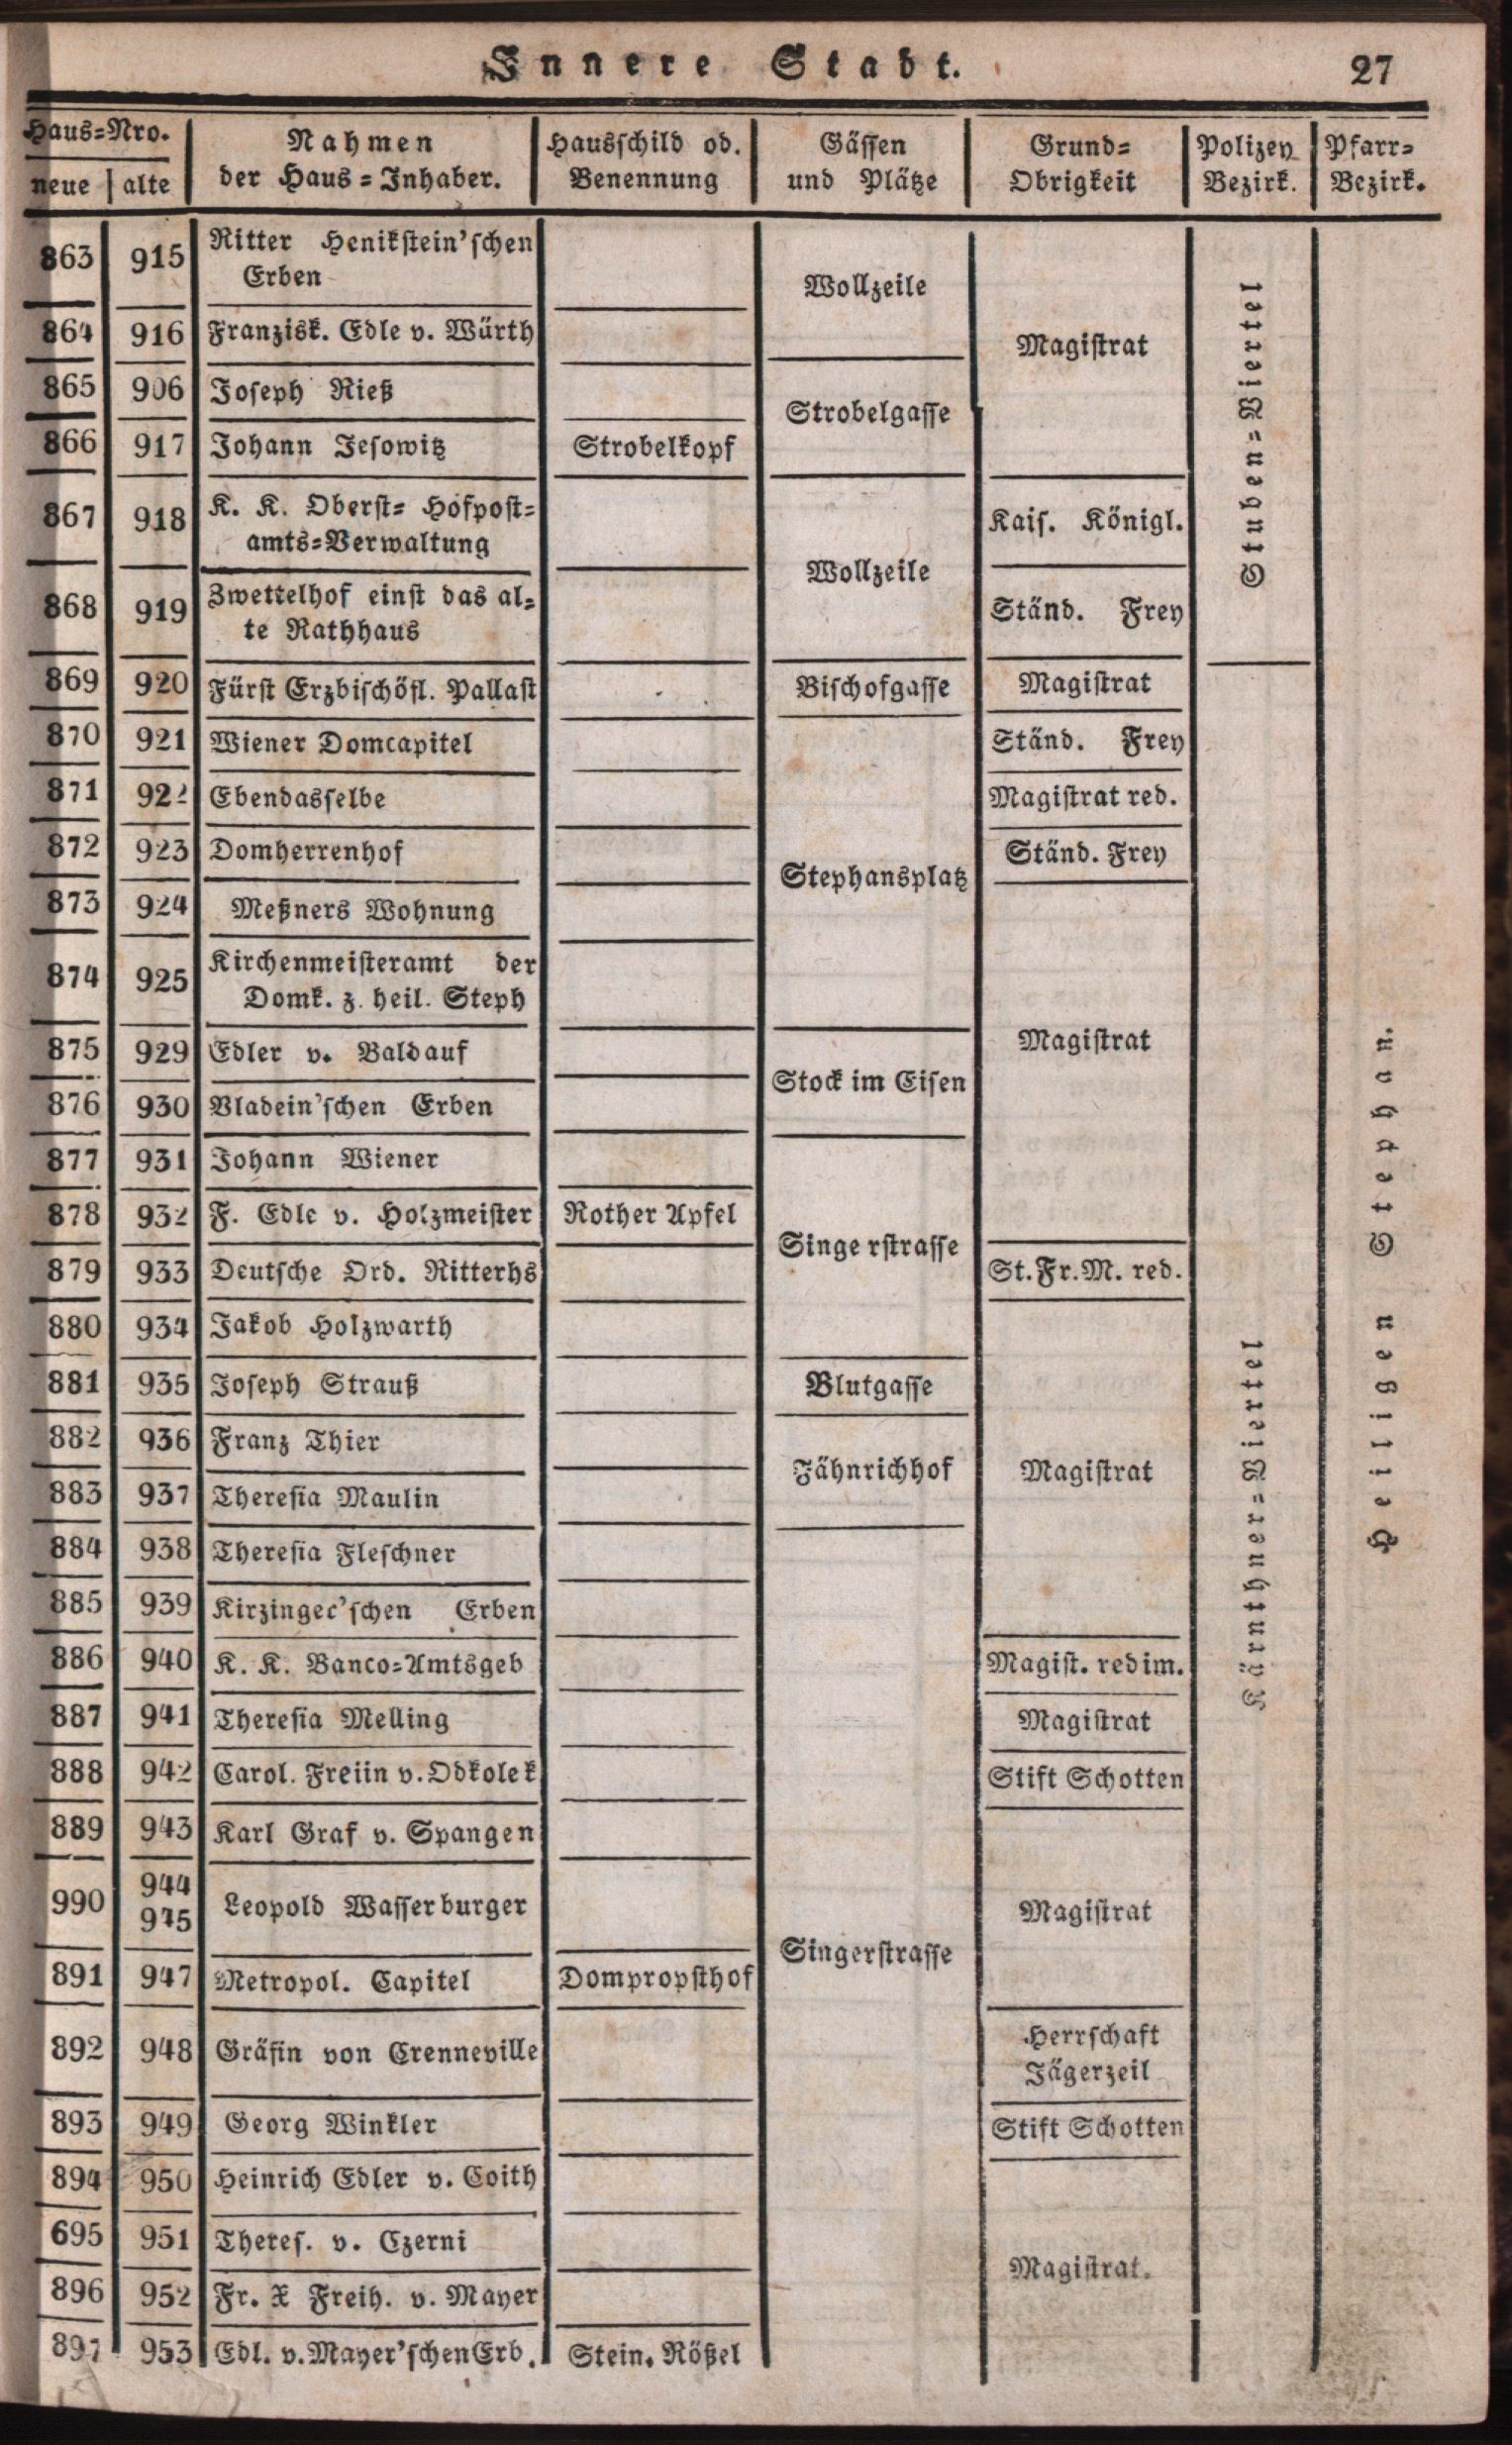 Innere Stadt. 27
Haus=Nro. Nahmen Hausschild od. Gässen Grund= Polizey Pfarr=
neue alte der Haus=Inhaber. Benennung und Plätze Obrigkeit Bezirk. Bezirk.
863 915 Ritter Henikstein'schen
Erben
Wollzeile
864 916 Franzisk. Edle v. Würth
Magistrat
865 906 Joseph Rieß
Strobelgasse
866 917 Johann Jesowitz Strobelkopf
Stuben=Viertel
867 918 K. K. Oberst= Hofpost=
amts=Verwaltung
Kais. Königl.
Wollzeile
868 919 Zwettelhof einst das al=
te Rathhaus
Ständ. Frey
869 920 Fürst Erzbischöfl. Pallast Bischofgasse Magistrat
870 921 Wiener Domcapitel Ständ. Frey
871 922 Ebendasselbe Magistrat red.
872 923 Domherrenhof Ständ. Frey
Stephansplatz
873 924 Meßners Wohnung
874 925 Kirchenmeisteramt der
Domk. z. heil. Steph
Magistrat
875 929 Edler v. Baldauf
Stock im Eisen
876 930 Vladein'schen Erben
877 931 Johann Wiener
878 932 F. Edle v. Holzmeister Rother Apfel
Singerstrasse
879 933 Deutsche Ord. Ritterhs St. Fr. M. red.
Heiligen Stephan.
880 934 Jakob Holzwarth
881 935 Joseph Strauß Blutgasse
882 936 Franz Thier
Fähnrichhof Magistrat
883 937 Theresia Maulin
Kärnthner=Viertel
884 938 Theresia Fleschner
885 939 Kirzingec'schen Erben
886 940 K. K. Banco=Amtsgeb Magist. redim.
887 941 Theresia Melling Magistrat
888 942 Carol. Freiin v. Odkolek Stift Schotten
889 943 Karl Graf v. Spangen
990 944
945 Leopold Wasserburger Magistrat
Singerstrasse
891 947 Metropol. Capitel Dompropsthof
892 948 Gräfin von Crenneville Herrschaft
Jägerzeil
893 949 Georg Winkler Stift Schotten
894 950 Heinrich Edler v. Coith
695 951 Theres. v. Czerni
Magistrat.
896 952 Fr. X Freih. v. Mayer
897 953 Edl. v. Mayer'schen Erb. Stein. Rößel